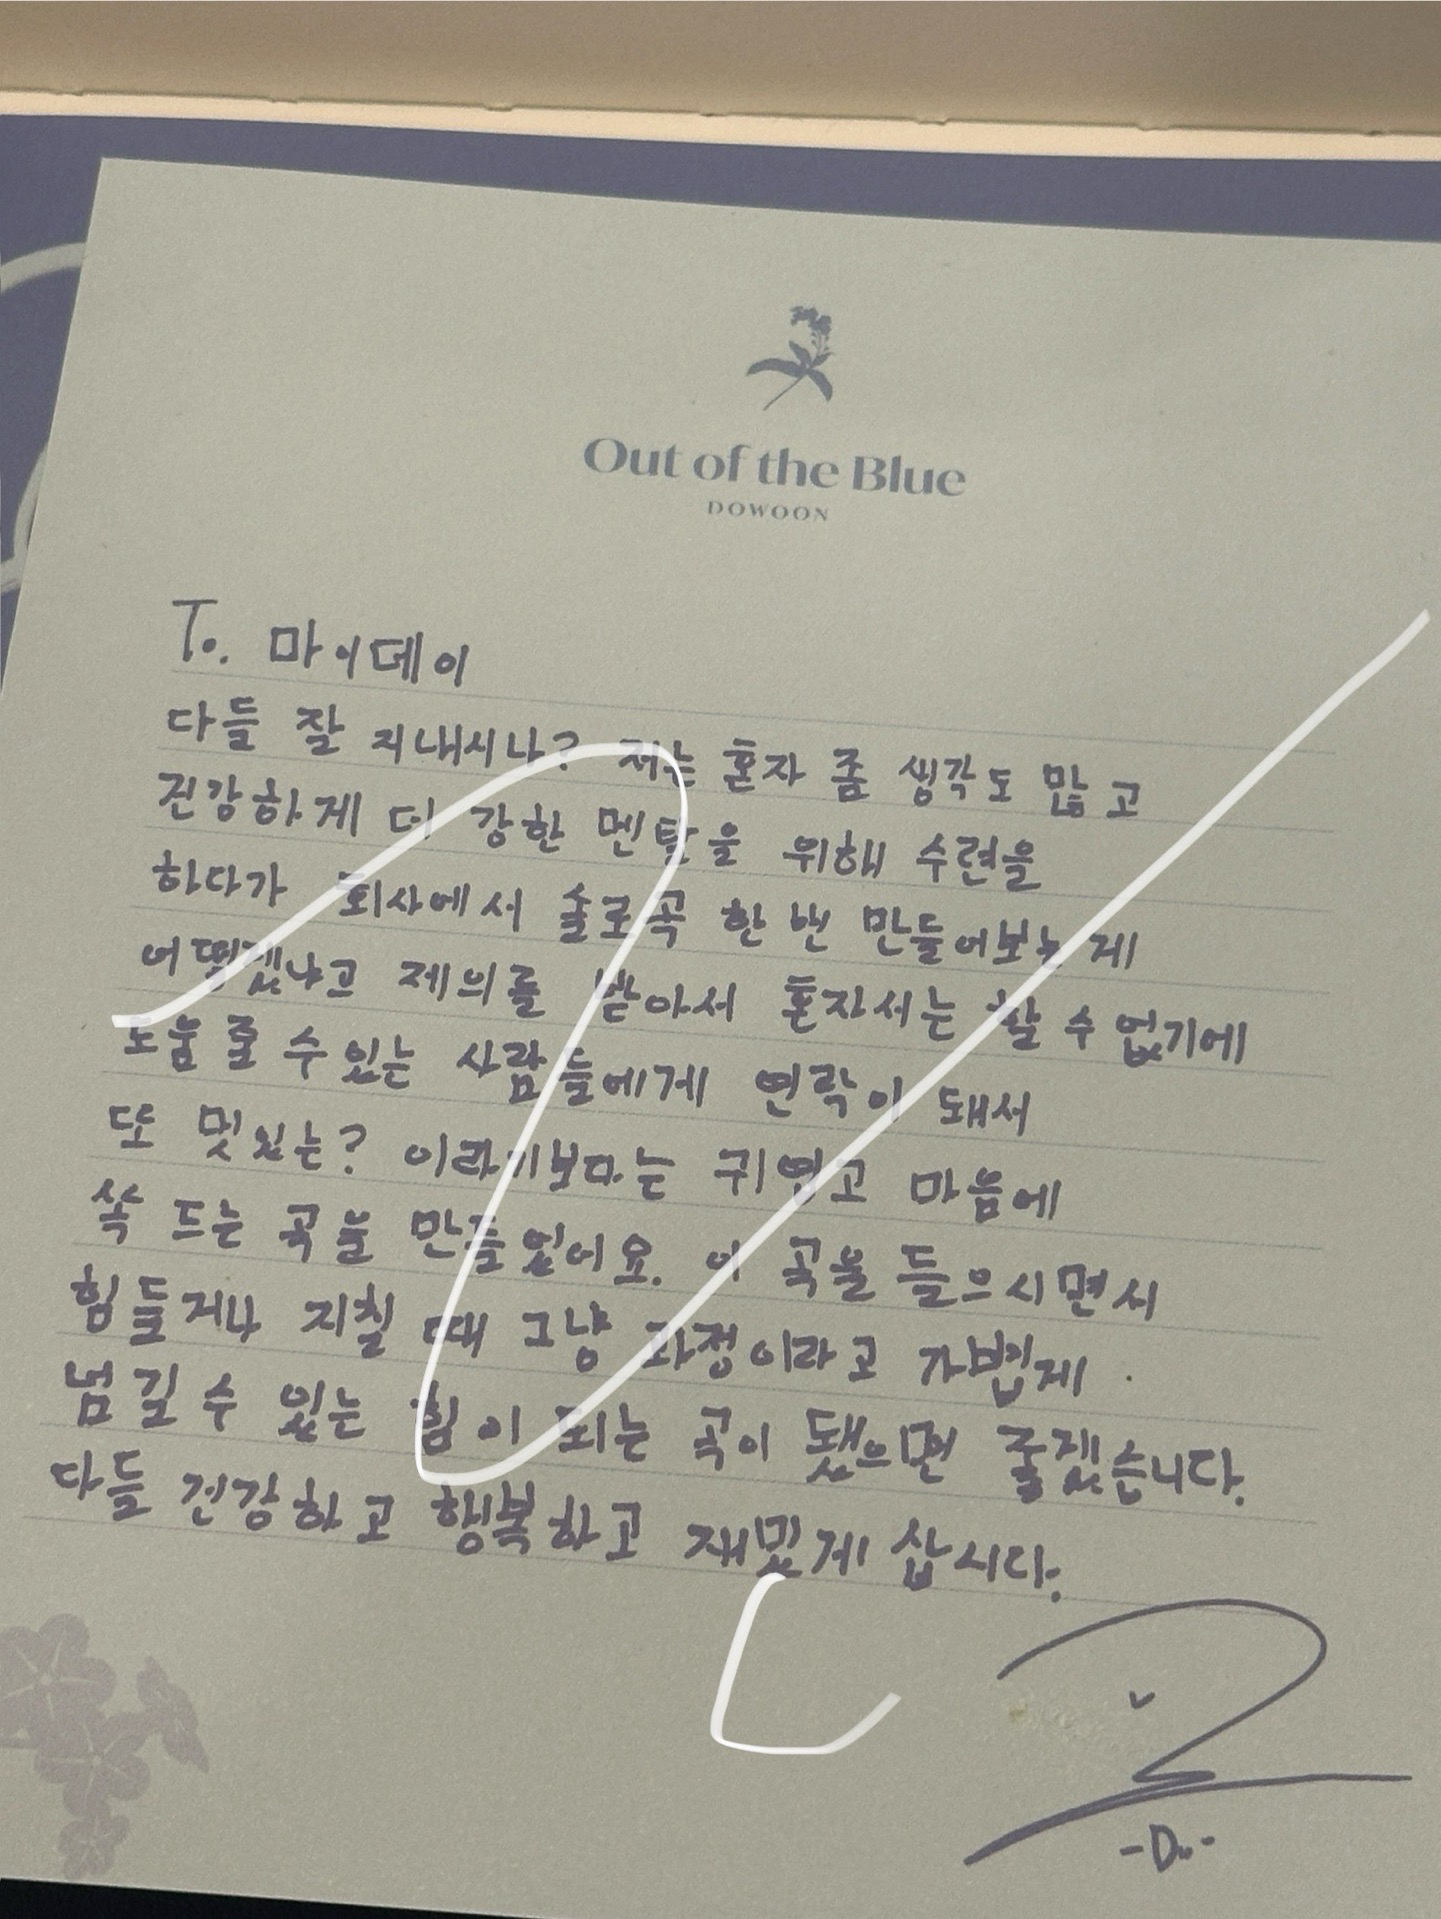 Out of the Blue
DOWOON
To. 마이데이
다들 잘 지내시나? 저는 혼자 좀 생각도 많고
건강하게 더 강한 멘탈을 위해 수련을
하다가 회사에서 솔로곡 한 번 만들어보는 게
어떻겠냐고 제의를 받아서 혼자서는 할 수 없기에
도움 줄 수 있는 사람들에게 연락이 돼서
또 멋있는? 이라기보다는 귀엽고 마음에
쏙 드는 곡을 만들었어요. 이 곡을 들으시면서
힘들거나 지칠 때 그냥 과정이라고 가볍게
넘길 수 있는 힘이 되는 곡이 됐으면 좋겠습니다.
다들 건강하고 행복하고 재밌게 삽시다.